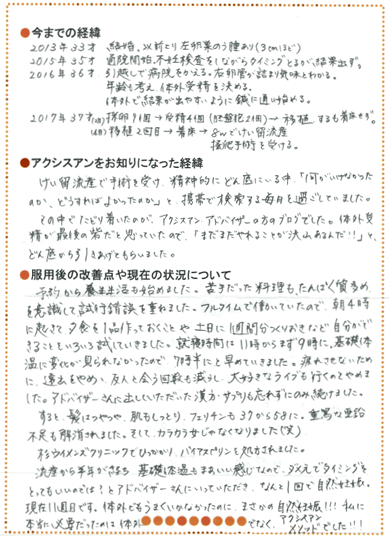 ●今までの経緯
2013年33才 結婚、以前より左卵巣のう腫あり(3cmほど)
2015年35才 通院開始。不妊検査をしながらタイミングとるが結果出ず。
2016年36才 引越しで病院をかえる。右卵管が詰まり気味とわかる。
年齢も考え、体外受精を決める。
体外で結果が出やすいように鍼に通い始める。
2017年37才 採卵 → 受精4個 → 移植するも着床せず。
移植2回目 → 着床 → 8wでけい留流産
掻把手術を受ける。
●アクシスアンをお知りになった経緯
けい留流産で手術を受け、精神的にどん底にいる中、「何がいけなかった
のか、どうすればよかったか」と、携帯で検索する毎日を過ごしていました。
その中でたどり着いたのが、アクシスアン アドバイザーの方のブログでした。体外受
精が最後の砦だと思っていたので、「まだまだやれることが沢山あるんだ!!」と、
どん底から引きあげてもらいました。
●服用後の改善点や現在の状況について
予約から養生生活も始めました。苦手だった料理も、たんぱく質多め
を意識して試行錯誤を重ねました。フルタイムで働いていたので、朝4時
に起きて夕食を1品作っておくことや土日に1週間分つくりおきなど自分がで
きることをいろいろ試していきました。就寝時間は11時からまず9時に。基礎体
温に変化が見られなかったので7時半にと早めていきました。疲れさせないため
に、遠出をやめ、友人と会う回数も減らし、大好きなライブも行くのをやめま
した。アドバイザーさんに出していただいた漢方・サプリも忘れずにのみ続けました。
すると、髪はつやつや、肌もしっとり、フェリチンも37から51に。重篤な亜鉛
不足も解消されました。そして、カラカラ女じゃなくなりました(笑)
杉ウイメンズクリニックでひっかかり、バイアスピリンを処方されました。
流産から半年が経ち、基礎体温もまぁいい感じなので、ダメもとでタイミングを
とってもいいのでは?とアドバイザーさんにいっていただき、なんと1回で自然妊娠。
現在11週目です。体外でもうまくいかなかったのに、まさかの自然妊娠!!! 私に
本当に必要だったのは体外 でなく、アクシスアン
メソッドでした!!!